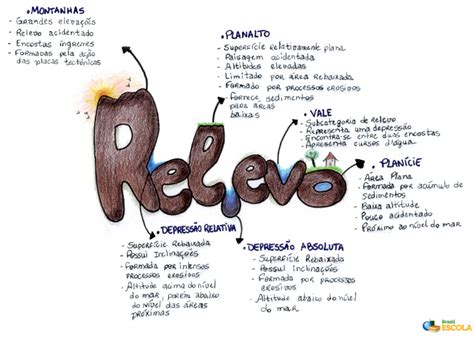 • MONTANHAS
- Grandes elevações
- Relevo acidentado
- Encostas íngremes
- Formadas pela ação
das placas tectônicas
• PLANALTO
- Superfície relativamente plana
- Paisagem acidentada
- Altitudes elevadas
- Limitado por área rebaixada
- Formado por processos erosivos
- Fornece sedimentos
para áreas
baixas
• VALE
- Subcategoria de relevo
- Representa uma depressão
- Encontra-se entre duas encostas
- Apresenta cursos d'água
• PLANÍCIE
- Área Plana
- Formada por acúmulo de
sedimentos
- Baixa altitude
- Pouco acidentado
- Próximo ao nível do mar
Relevo
• DEPRESSÃO RELATIVA
- Superfície Rebaixada
- Possui Inclinações
- Formada por intensos
processos erosivos
- Altitude acima do nível
do mar, porém abaixo
do nível das áreas
próximas
• DEPRESSÃO ABSOLUTA
- Superfície Rebaixada
- Possui Inclinações
- Formada por processos
erosivos
- Altitude abaixo do nível
do mar
Brasil
ESCOLA